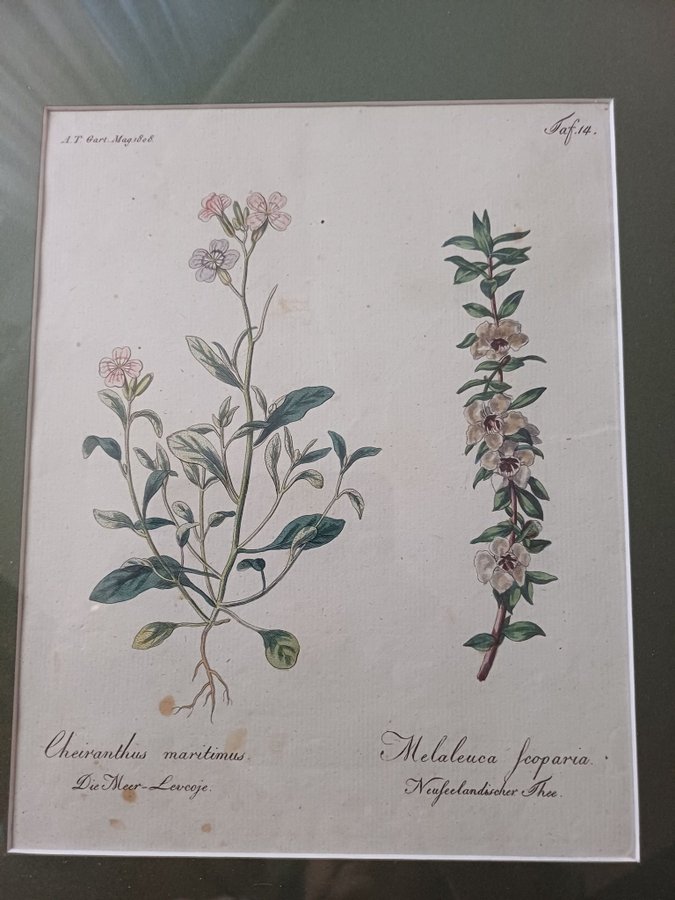 A. T. Gart. Mag. 1808.
Taf. 14.
Cheiranthus maritimus.
Die Meer-Levcoje.
Melaleuca ſcoparia.
Neuſeelandischer Thee.